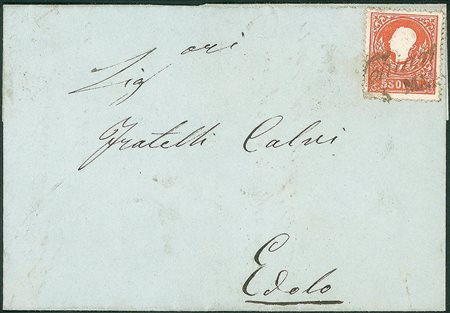 Sigori
Fratelli Calvi
Edolo